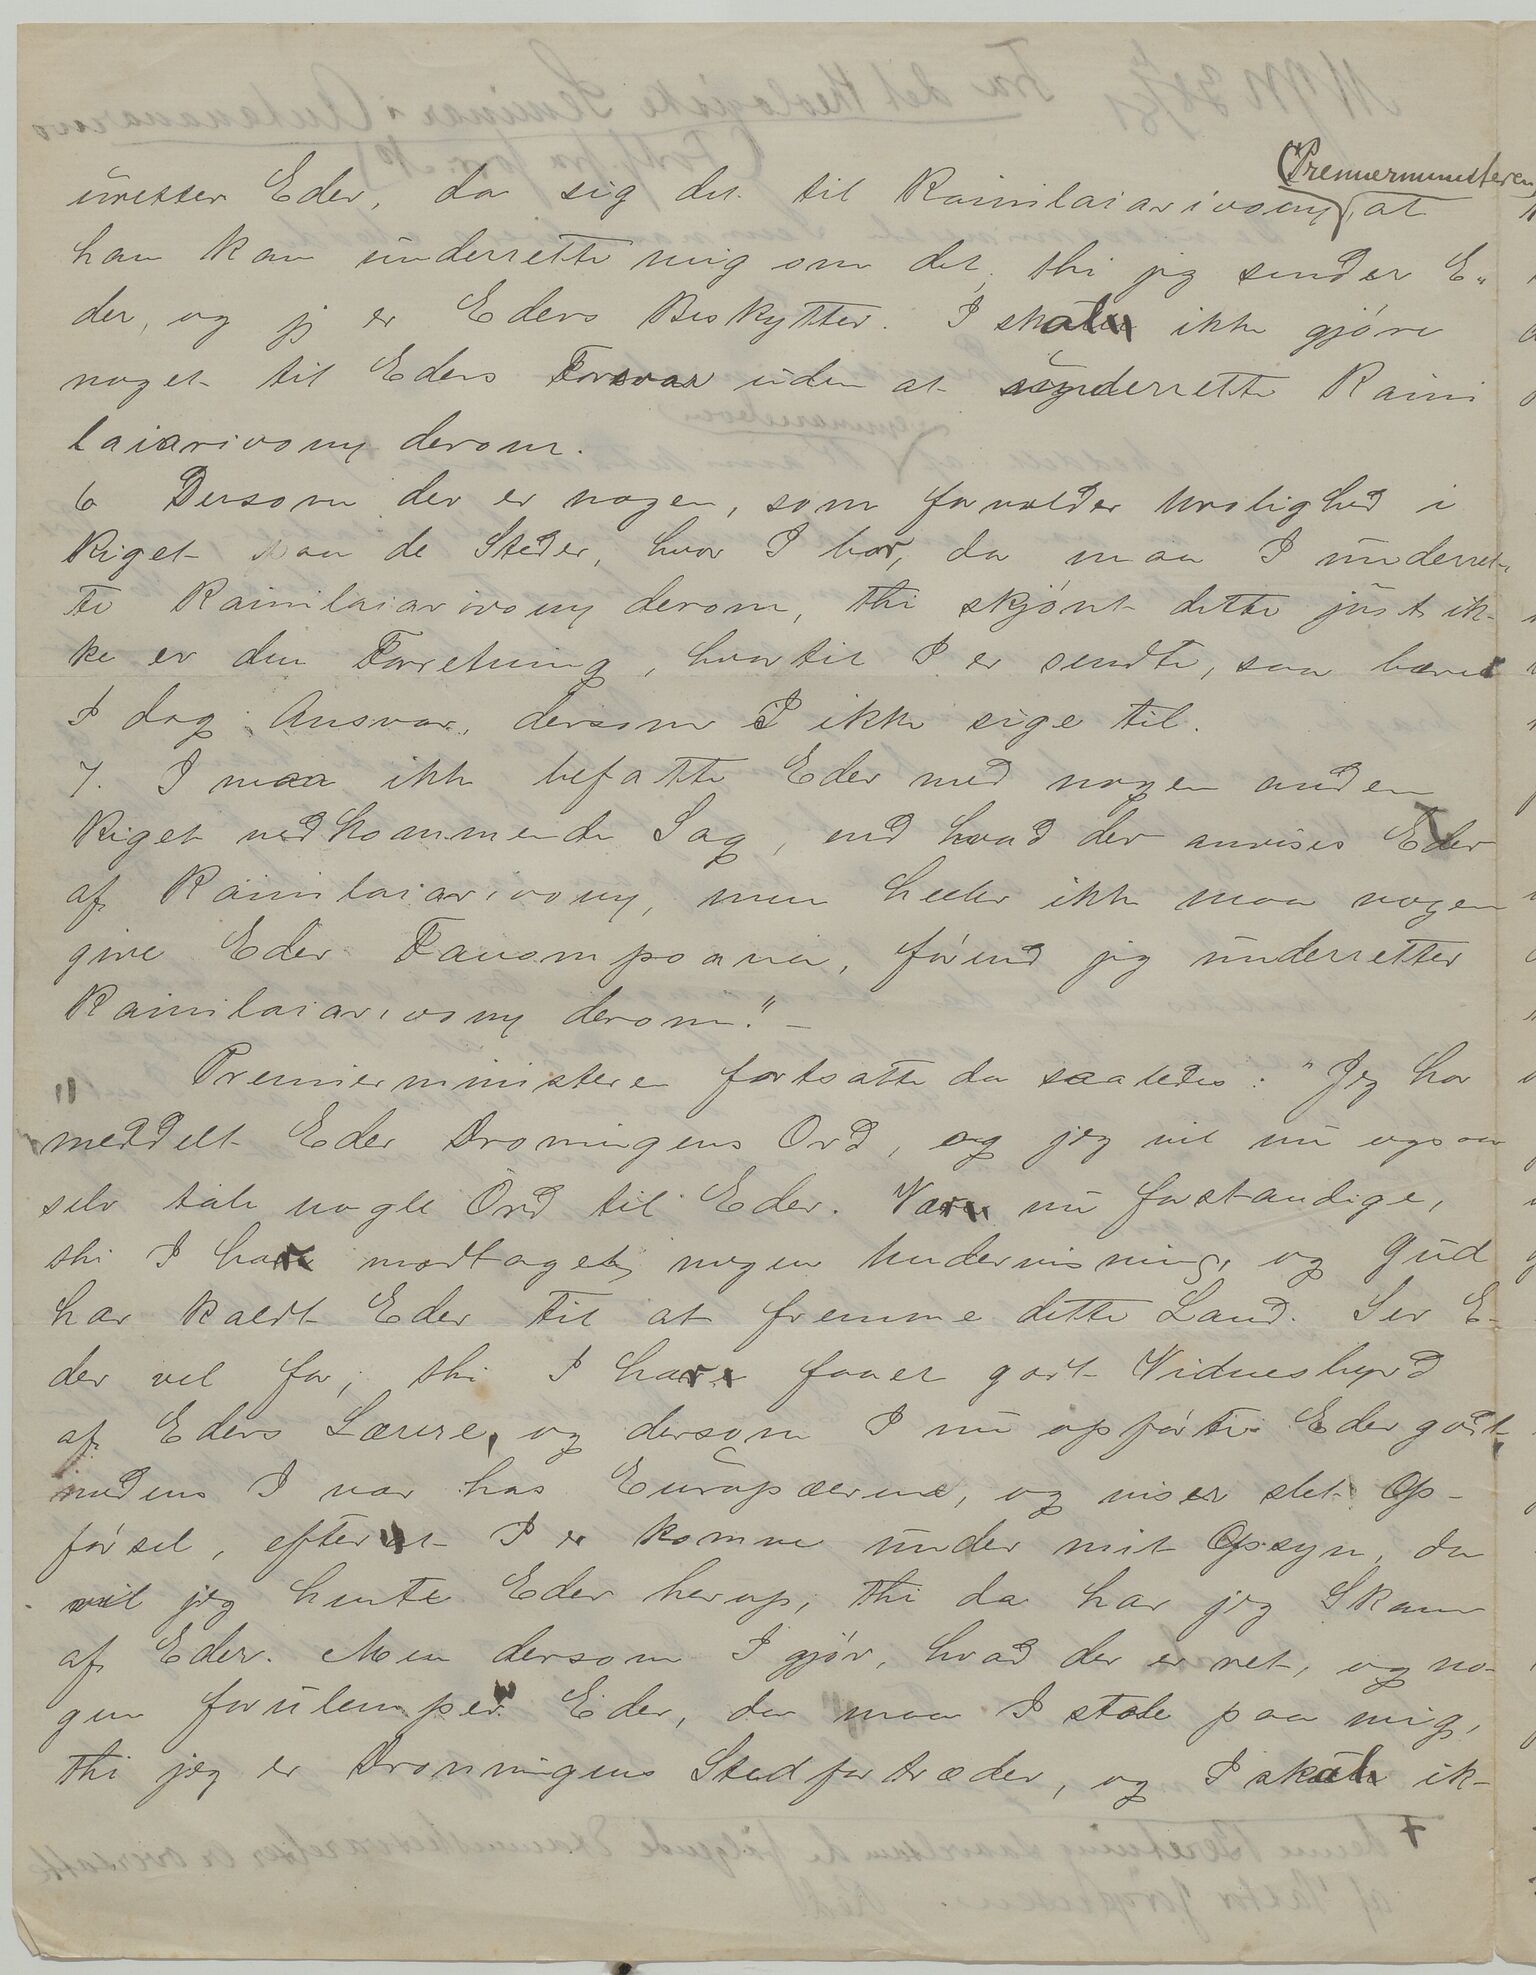 (Premierministeren)
uretter Eder, da sig det til Rainilaiarivony, at
han kan underrette mig om det, thi jeg sender E-
der, og jg er Eders Beskytter. I skal ikke gjøre
noget til Eders Forsvar uden at underrette Raini
laiarivony derom.
6 Dersom der er nogen, som forvolder Urolighed i
Riget paa de Steder, hvor I bor, da maa I underret-
te Rainilaiarivony derom, thi skjønt dette just ik-
ke er den Forretning, hvortil I er sendte, saa bærer
I dog Ansvar, dersom I ikke sige til.
7. I maa ikke befatte Eder med nogen anden
Riget vedkommende Sag, end hvad der anvises Eder
af Rainilaiarivony, men heller ikke maa nogen
give Eder Fanompoana, førend jeg underretter
Rainilaiarivony derom." –
" Premierministeren fortsatte da saaledes: "Jeg har
meddelt Eder Droningens Ord, og jeg vil nu ogsaa
selv tale nogle Ord til Eder. Vær nu forstandige,
thi I har modtaget nogen Undervisning, og Gud
har kaldt Eder til at fremme dette Land. Ser E-
der vel for, thi I har faaet godt Vidnesbyrd
af Eders Lærere, og dersom I nu opførte Eder godt,
medens I var hos Europæerne, og viser slet Op-
førsel, efterat I er komne under mit Opsyn, da
vil jeg hente Eder herop, thi da har jeg Skam
af Eder. Men dersom I gjør, hvad der er ret, og no-
gen forulemper Eder, da maa I stole paa mig,
thi jeg er Dronningens Stedfortræder, og I skal ik-